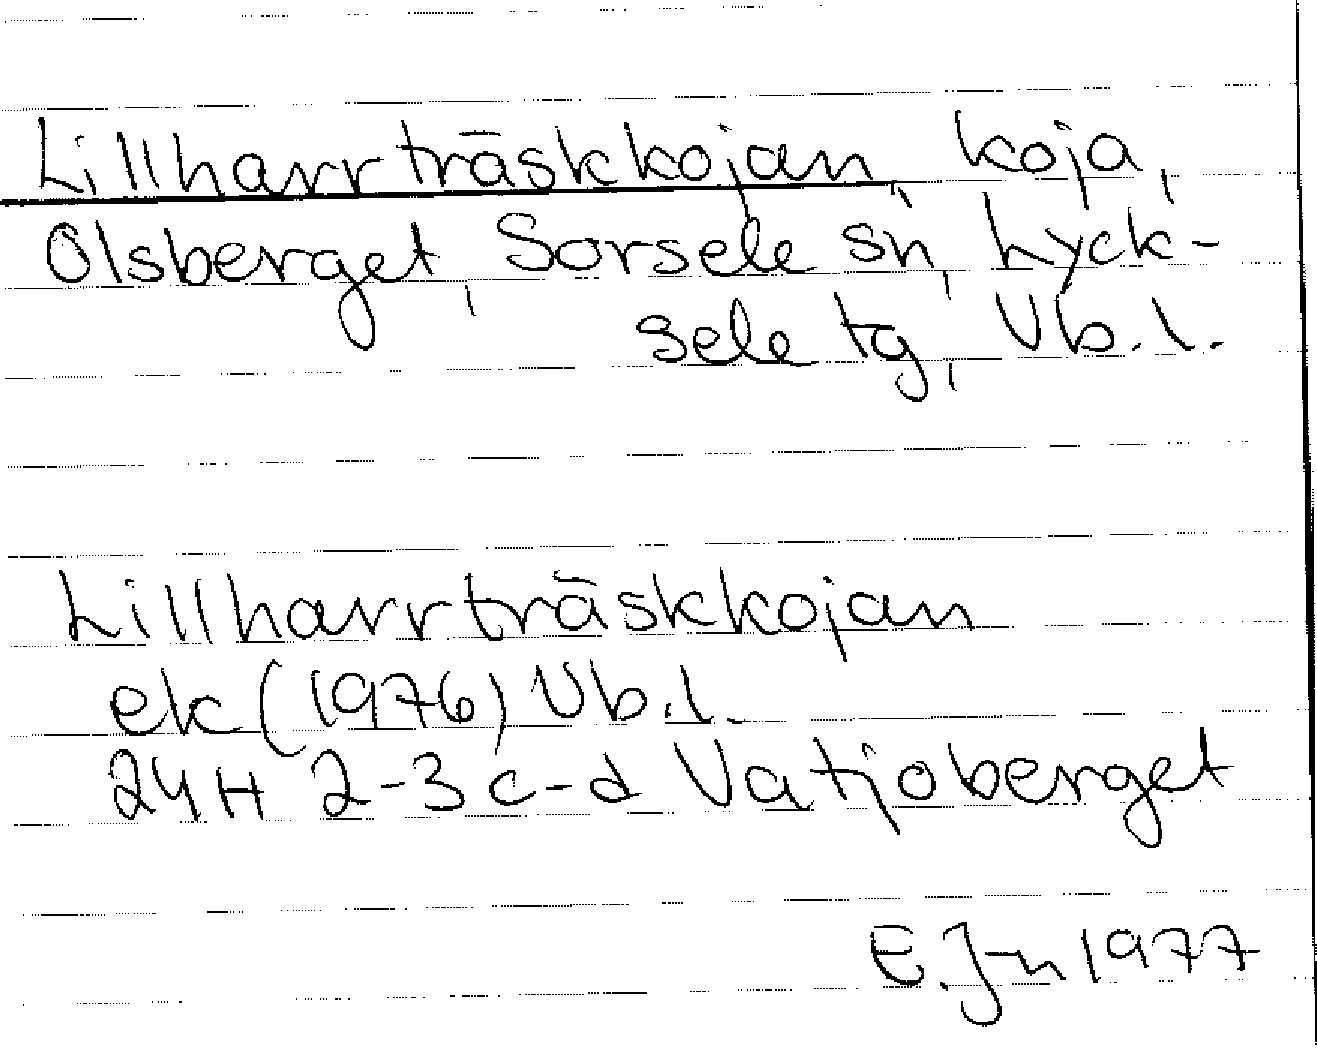 Lillharrträskkojan, koja,
Olsberget, Sorsele sn, Lyck-
sele tg, Vb.l.
Lillharrträskkojan
ek (1976) Vb.l.
24H 2-3 c-d Vatjoberget
E.J-n 1977